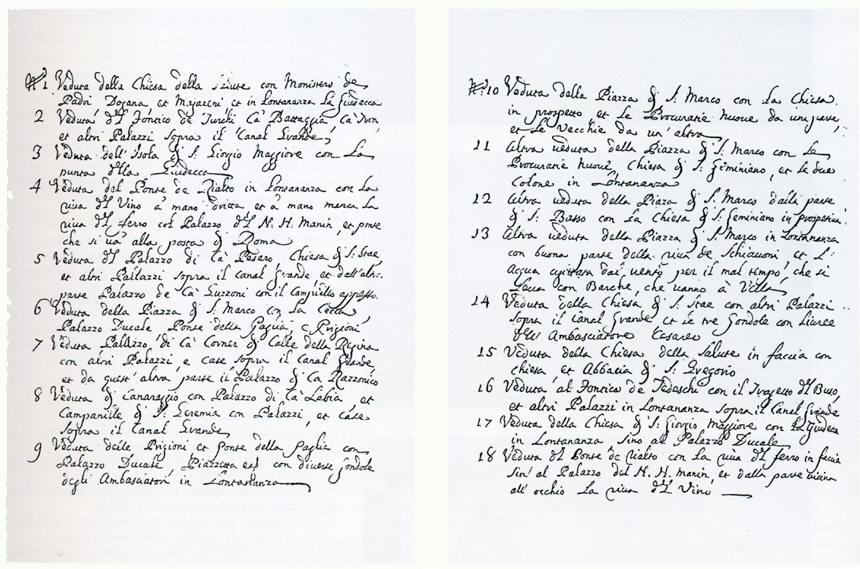 N.º 1 Veduta della Chiesa della Salute con Monistero de
Padri Dogana, et Magazeni et in Lontananza La Giudecca
2 Veduta del Fontico de Turchi Cà Battaggia, Cà Tron
et altri Palazzi sopra il Canal Grande,
3 Veduta dell'Isola di S. Giorgio Maggiore con La
punta della Giudecca
4 Veduta del Ponte de Rialto in Lontananza con La
riva del Vino à mano dritta et à mano manca La
riva del ferro col Palazzo del N. H. Manin, et parte
che si va alla posta di Roma
5 Veduta del Palazzo di Cà Pesaro, Chiesa di S. Stae,
et altri Pallazzi sopra il Canal Grande et dall'altra
parte Palazzo de Cà Guzzoni con il Campiello appresso.
6 Veduta della Piazza di S. Marco con La
Palazzo Ducale Ponte della Paglia, e Prigioni,
7 Veduta Pallazzo, di Cà Corner di Calle della Regina
con altri Palazzi e case sopra il Canal Grande,
et da quest'altra parte il Palazzo di Cà Razzonico
8 Veduta di Canareggio con Palazzo di Cà Labia, et
Campanille di S. Geremia con Palazzi, et Case
sopra il Canal Grande
9 Veduta delle Prigioni et Ponte della Paglia con
Palazzo Ducale, Piazzetta et con diverse gondole
degli Ambasciatori in Lontananza
N.º 10 Veduta della Piazza di S. Marco con La Chiesa
in prospetto et le Procuratie nuove da una parte,
et Le Vecchie da un'altra
11 Altra veduta della Piazza di S. Marco con Le
Procuratie nuove, Chiesa di S. Geminiano, et le due
Colone in Lontananza
12 Altra veduta della Piaza di S. Marco dalla parte
di S. Basso con La Chiesa di S. Geminiano in prospetiva
13 Altra veduta della Piazza di S. Marco in Lontananza
con buona parte della riva de Schiavoni et L'
Acqua agitata dal vento per il mal tempo, che si
Leva con Barche, che vanno à Vella
14 Veduta della Chiesa di S. Stae con altri Palazzi
sopra il Canal Grande et Le tre Gondole con Livree
dell'Ambasciatore Cesareo
15 Veduta della Chiesa della Salute in faccia con
chiesa et Abbatia di S. Gregorio
16 Veduta al Fontico de Tedeschi con il Tragetto del Buso,
et altri Palazzi in Lontananza sopra il Canal Grande
17 Veduta della Chiesa di S. Giorgio Maggiore con La Giudeca
in Lontananza sino al Palazzo Ducale
18 Veduta del Ponte de Rialto con La riva del ferro in faccia
sin' al Palazzo del N. H. Manin, et dalla parte vicina
all'occhio La riva del Vino